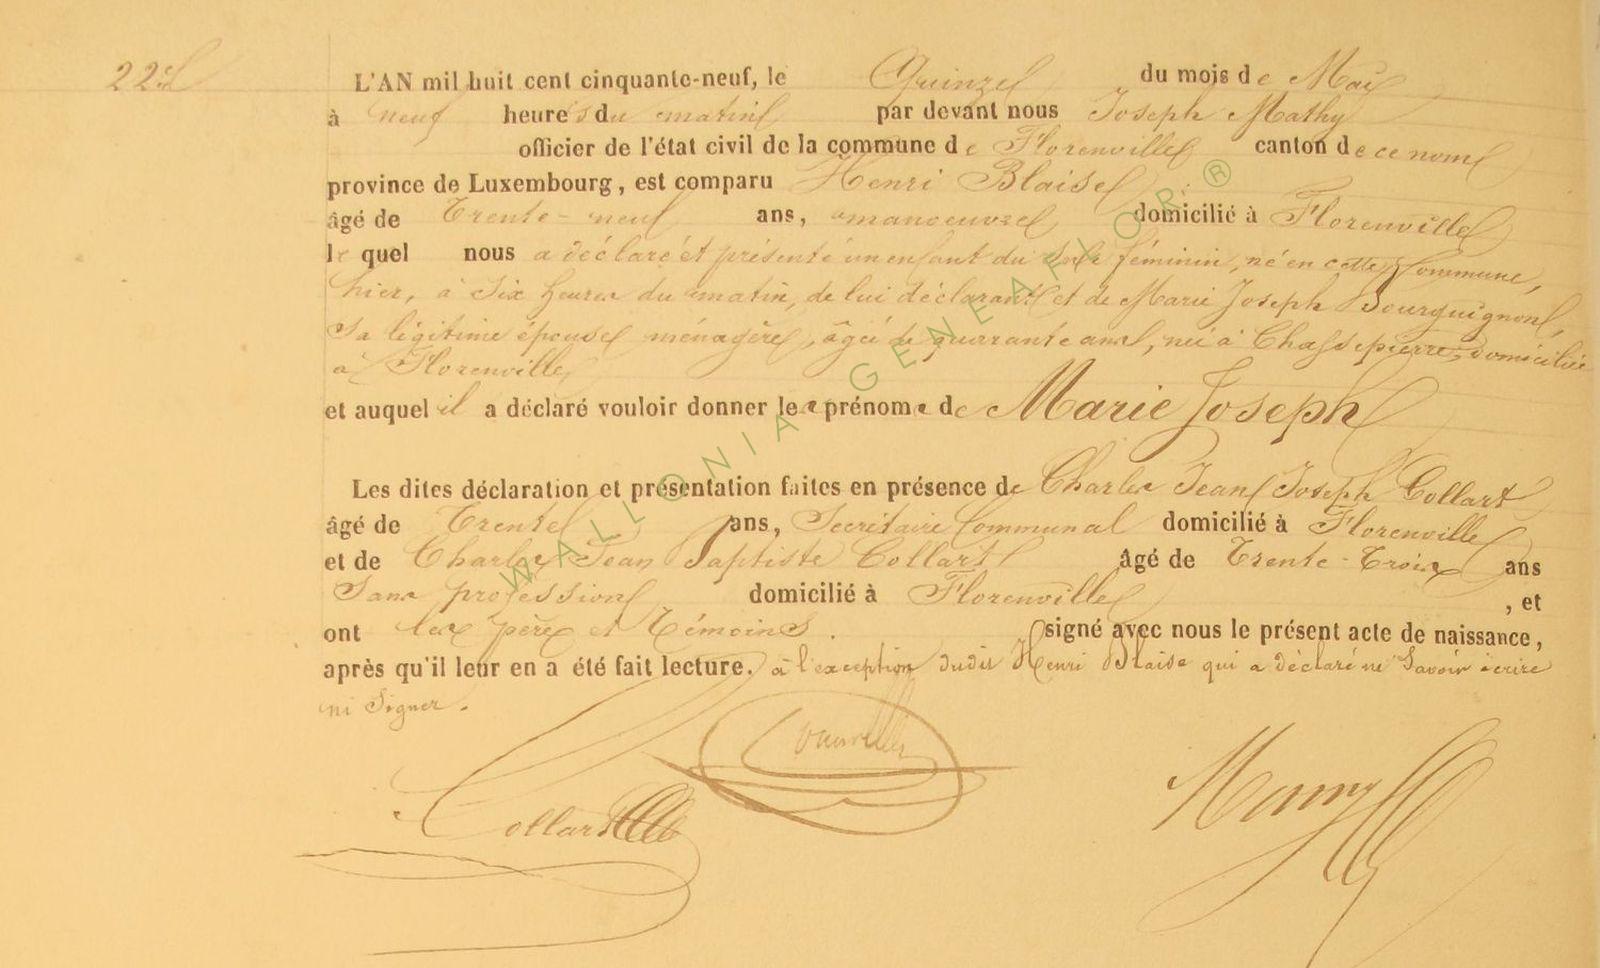 22
L'AN mil huit cent cinquante-neuf, le Quinze du mois de Mai
à neuf heures du matin par devant nous Joseph Mathy
officier de l'état civil de la commune de Florenville canton de ce nom
province de Luxembourg, est comparu Henri Blaise
âgé de Trente-neuf ans, manoeuvre domicilié à Florenville
le quel nous a déclaré et présenté un enfant du Sexe féminin, né en cette Commune,
hier, à Six heures du matin, de lui déclarant et de Marie Joseph Bourguignon,
Sa légitime épouse ménagère, âgée de quarante ans, née à Chassepierre, domiciliée
à Florenville
et auquel il a déclaré vouloir donner les prénoms de Marie Joseph
Les dites déclaration et présentation faites en présence de Charles Jean Joseph Collart
âgé de Trente ans, Secrétaire Communal domicilié à Florenville
et de Charles Jean Baptiste Collart âgé de Trente-Trois ans
Sans profession domicilié à Florenville, et
ont les père et Témoins. signé avec nous le présent acte de naissance,
après qu'il leur en a été fait lecture. à l'exception dudit Henri Blaise qui a déclaré ne Savoir écrire
ni Signer.
Collart
WALLONIA GENEAFLOR ®